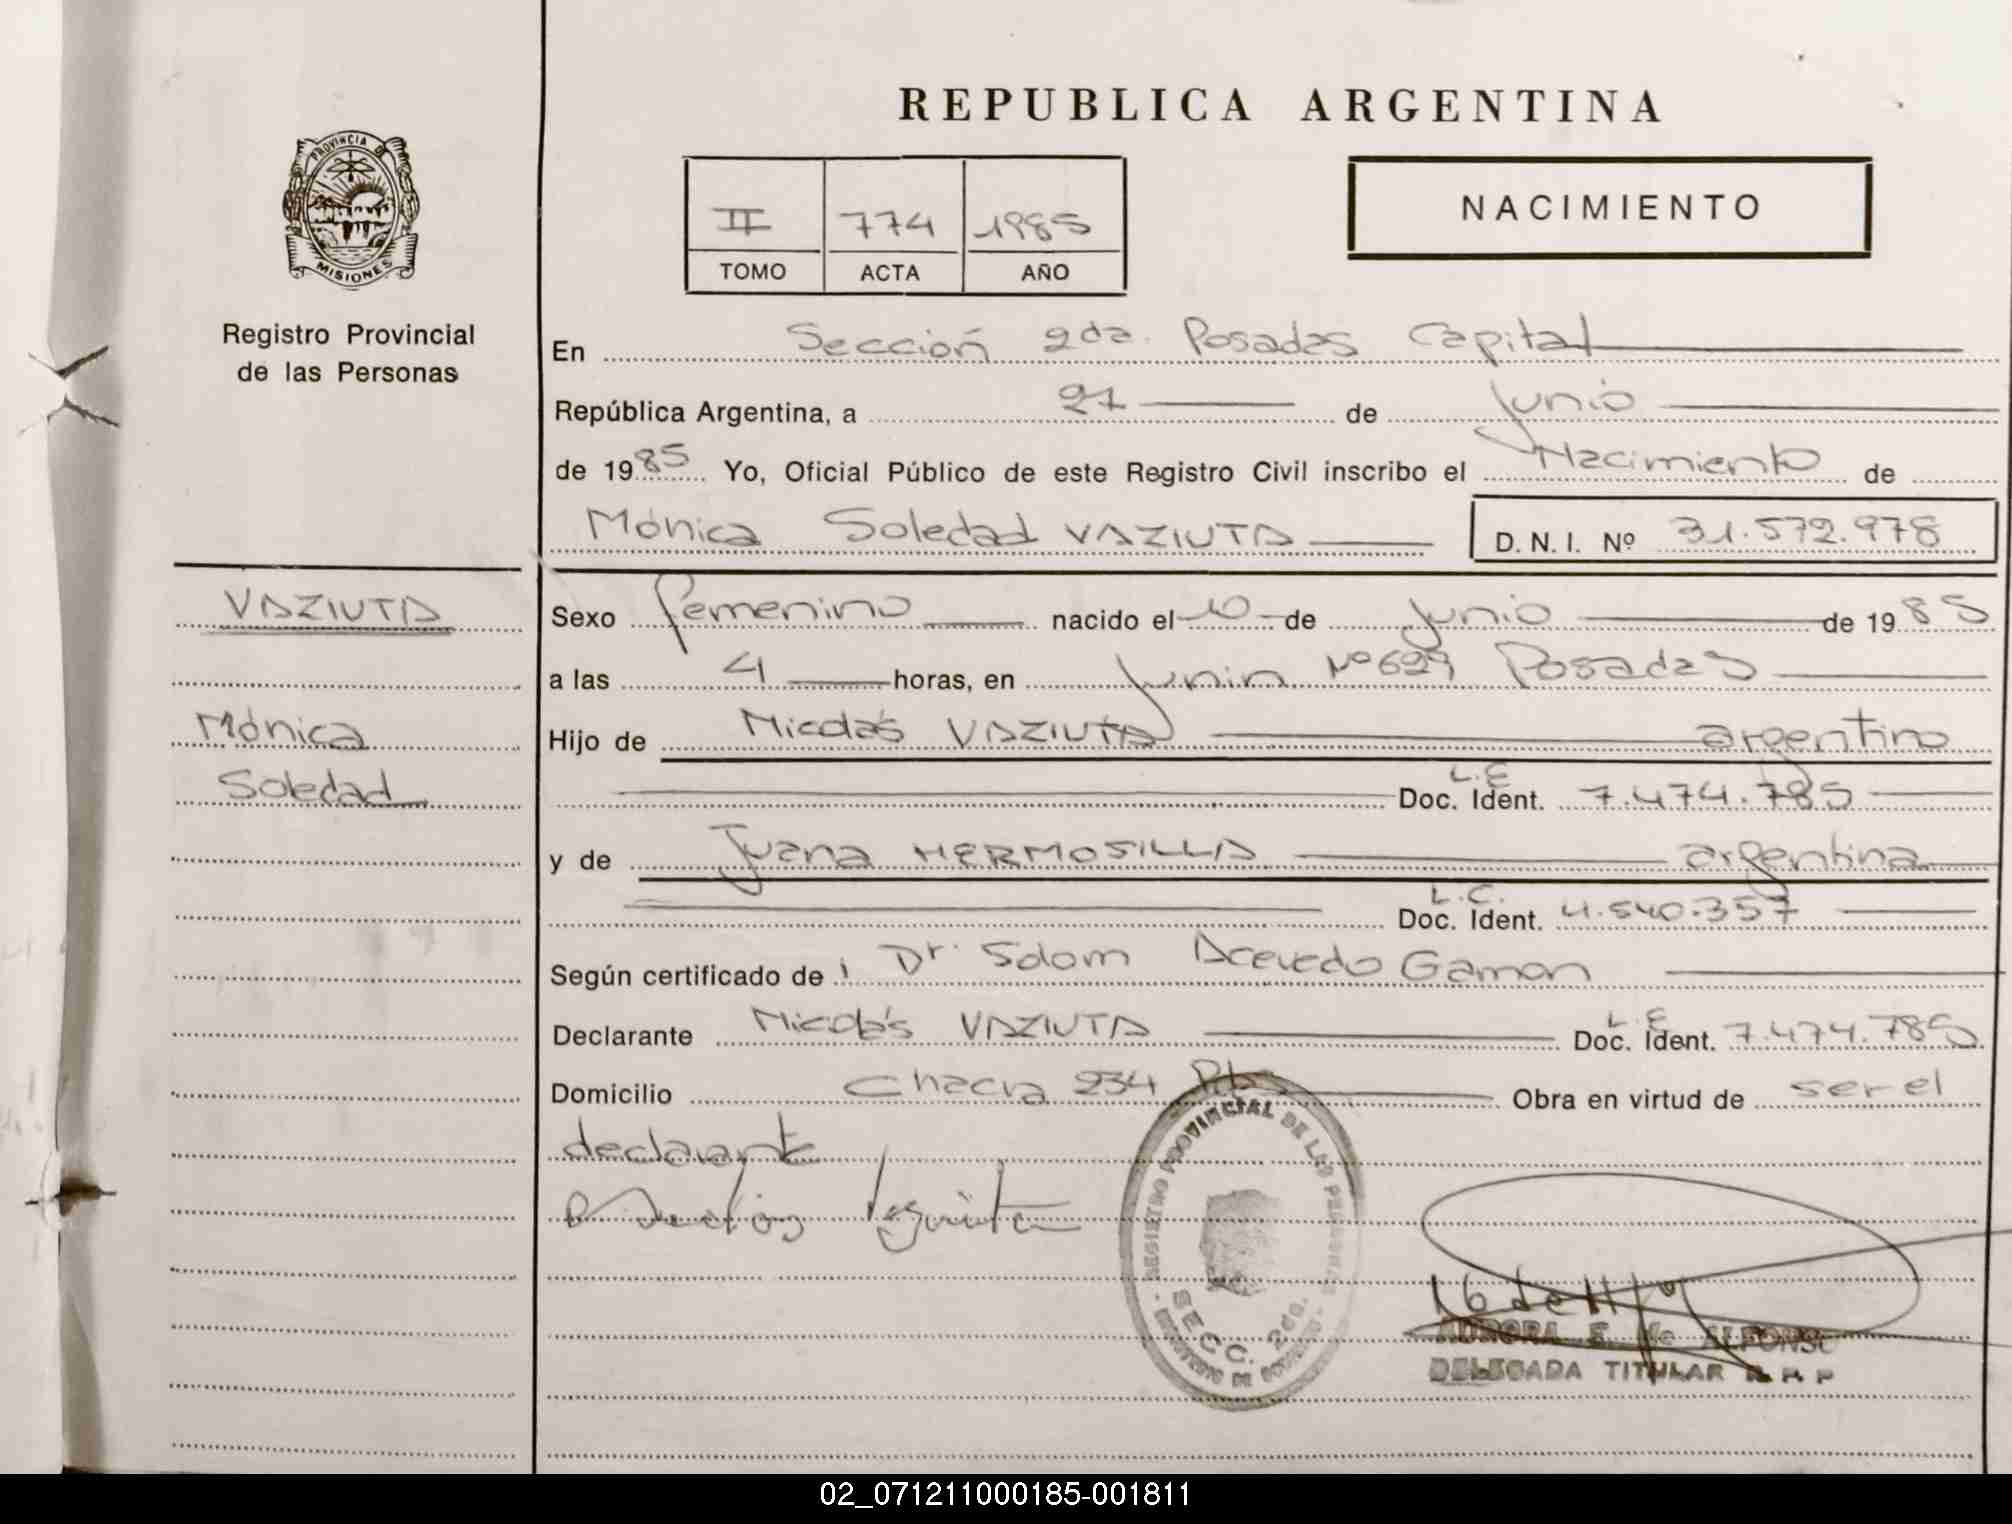 REPUBLICA ARGENTINA
PROVINCIA DE
MISIONES
Registro Provincial
de las Personas
II 774 1985
TOMO ACTA AÑO
NACIMIENTO
En Sección 2da. Posadas Capital
República Argentina, a 27 de Junio
de 1985 Yo, Oficial Público de este Registro Civil inscribo el Nacimiento de
Mónica Soledad VAZIUTA D. N. I. Nº 31.572.978
VAZIUTA
Mónica
Soledad
Sexo femenino nacido el 10 de Junio de 1985
a las 4 horas, en Junin Nº 629 Posadas
Hijo de Nicolás VAZIUTA argentino
L.E
Doc. Ident. 7.474.785
y de Juana HERMOSILLA argentina
L.C.
Doc. Ident. 4.540.357
Según certificado de Dr. Acevedo Gamon
Declarante Nicolás VAZIUTA L.E Doc. Ident. 7.474.785
Domicilio Chacra 234 Obra en virtud de ser el
declarante
REGISTRO PROVINCIAL DE LAS PERSONAS
SECC. 2da.
AURORA E. de ALFONSO
DELEGADA TITULAR R. P. P
02_071211000185-001811